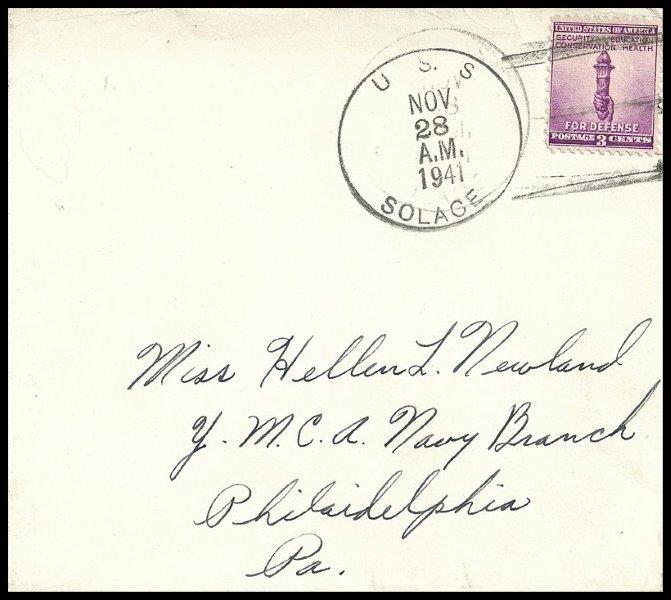 U. S. S
NOV.
28
A.M.
1941
SOLACE
UNITED STATES OF AMERICA
SECURITY EDUCATION
CONSERVATION HEALTH
FOR DEFENSE
POSTAGE 3 CENTS
Miss Hellen L. Newland
Y. M. C. A. Navy Branch
Philaidelphia
Pa.